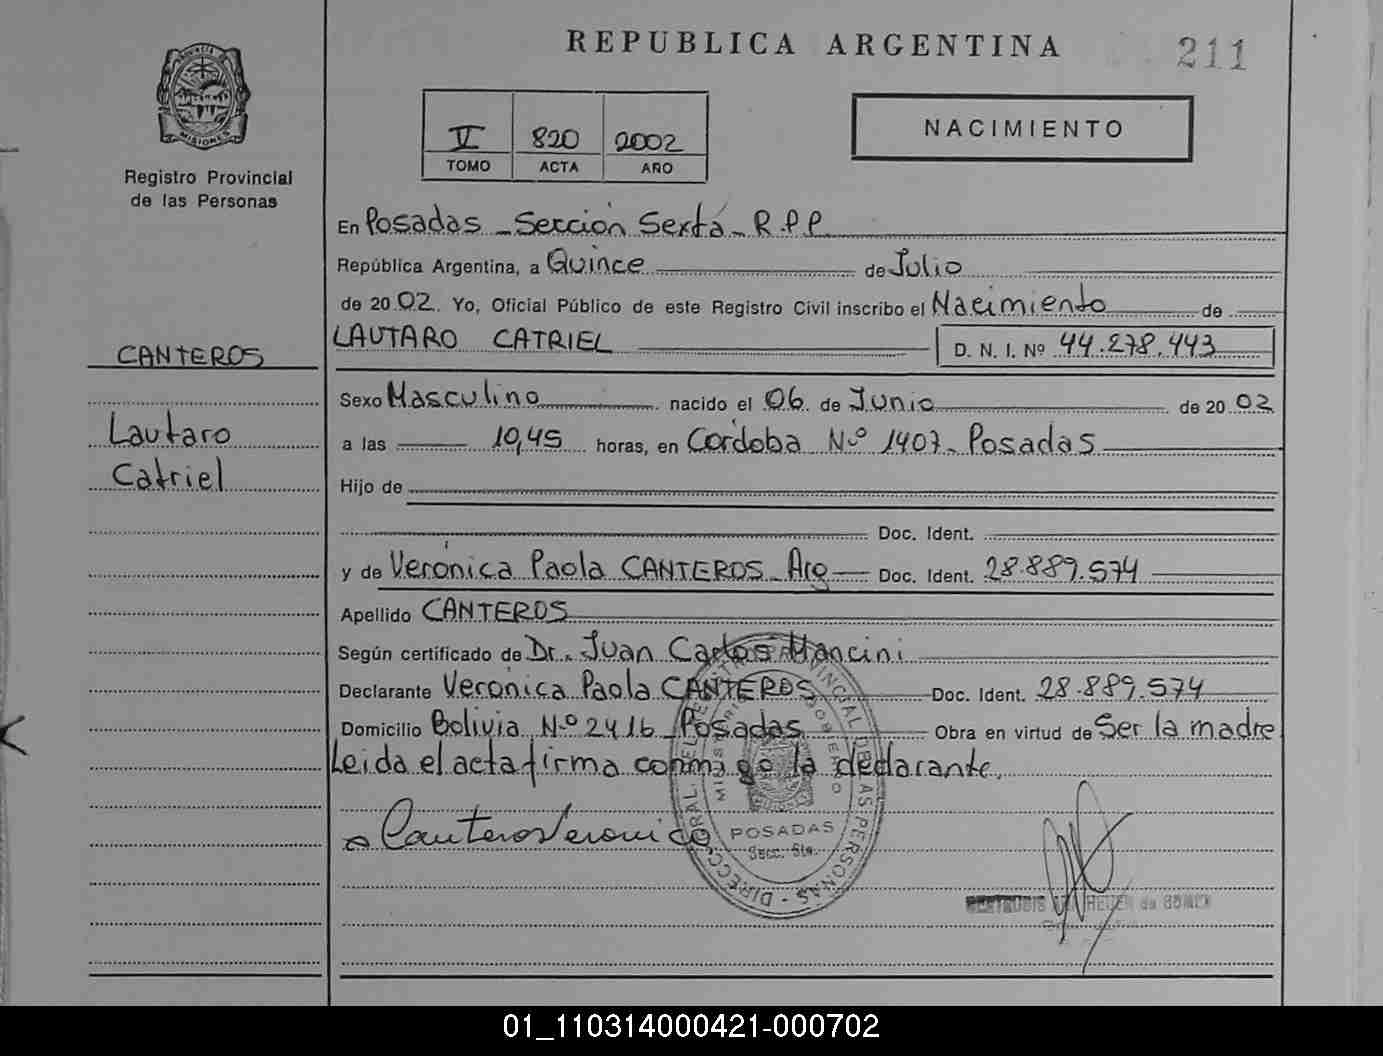 REPUBLICA ARGENTINA
211
PROVINCIA
MISIONES
Registro Provincial
de las Personas
V 820 2002
TOMO ACTA AÑO
NACIMIENTO
En Posadas - Sección Sexta - R.P.P.
República Argentina, a Quince de Julio
de 2002. Yo, Oficial Público de este Registro Civil inscribo el Nacimiento de
LAUTARO CATRIEL D. N. I. Nº 44.278.443
CANTEROS
Lautaro
Catriel
Sexo Masculino nacido el 06 de Junio de 2002
a las 10,45 horas, en Córdoba Nº 1407- Posadas
Hijo de
Doc. Ident.
y de Verónica Paola CANTEROS - Arg Doc. Ident. 28.889.574
Apellido CANTEROS
Según certificado de Dr. Juan Carlos Mancini
Declarante Verónica Paola CANTEROS Doc. Ident. 28.889.574
Domicilio Bolivia Nº 2416 - Posadas Obra en virtud de Ser la madre
Leida el acta firma conmigo la declarante.
Canteros Veronica
POSADAS
Secc. 6ta.